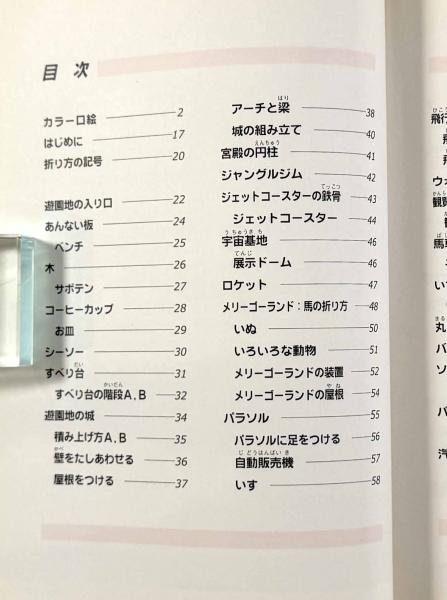 目次
カラー口絵 2
はじめに 17
折り方の記号 20
遊園地の入り口 22
あんない板 24
ベンチ 25
木 26
サボテン 27
コーヒーカップ 28
お皿 29
シーソー 30
すべり台 31
すべり台の階段A,B 32
遊園地の城 34
積み上げ方A,B 35
壁をたしあわせる 36
屋根をつける 37
アーチと梁 38
城の組み立て 40
宮殿の円柱 41
ジャングルジム 42
ジェットコースターの鉄骨 43
ジェットコースター 44
宇宙基地 46
展示ドーム 46
ロケット 47
メリーゴーランド:馬の折り方 48
いぬ 50
いろいろな動物 51
メリーゴーランドの装置 52
メリーゴーランドの屋根 54
パラソル 55
パラソルに足をつける 56
自動販売機 57
いす 58